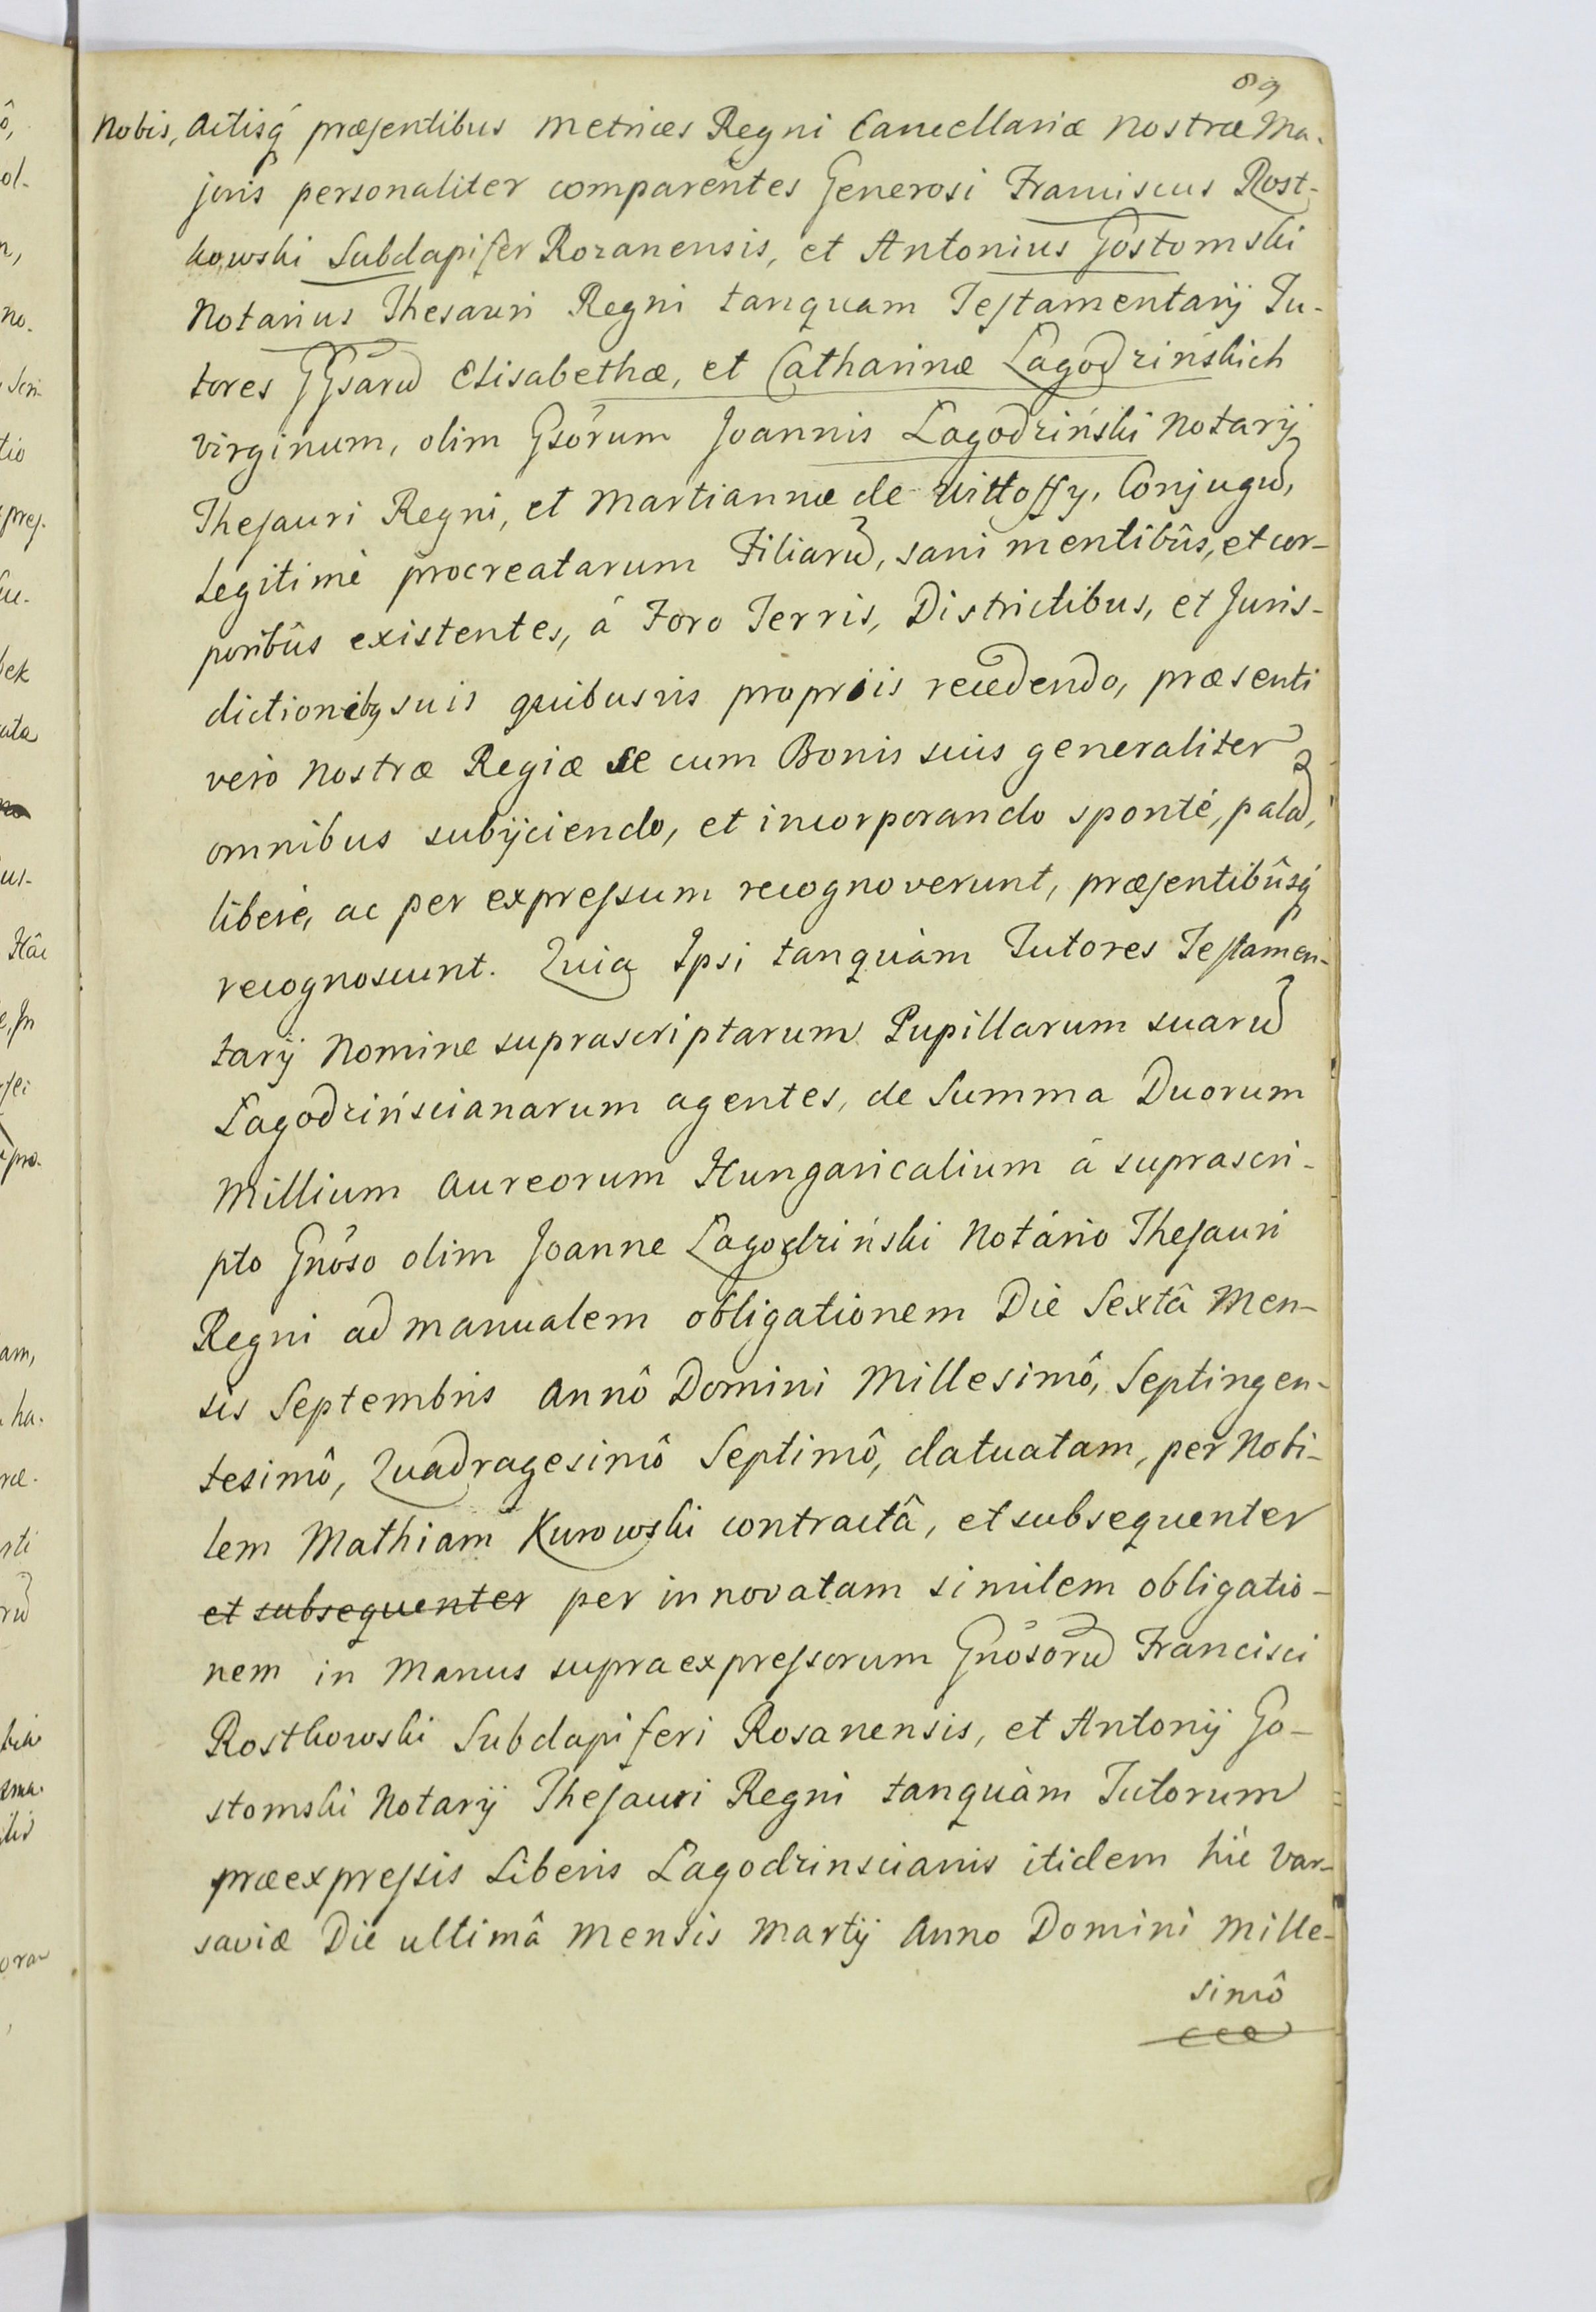 89
Nobis, Actisq́ præsentibus Metrices Regni Cancellariæ Nostræ Ma-
joris personaliter comparentes Generosi Franciscus Rost-
kowski Subdapifer Rozanensis, et Antonius Gostomski
Notarius Thesauri Regni tanquam Testamentarij Tu-
tores GGsarũ Elisabethæ, et Catharinæ Lagodzińskich
virginum, olim Gsorum Joannis Lagodziński Notarij
Thesauri Regni, et Martiannæ de Wittoffy, Conjugũ,
Legitimè procreatarum Filiarũ, sani mentibûs, et cor-
poribûs existentes, á Foro Terris, Districtibus, et Juris-
dictionibq suis quibusvis propriis recedendo, præsenti
verò Nostræ Regiæ se cum Bonis suis generaliter
omnibus subijciendo, et incorporando spontè, palã,
liberè, ac per expressum recognoverunt, præsentibûsq́
recognoscunt. Quia Ipsi tanquàm Tutores Testamen-
tarij Nomine suprascriptarum Pupillarum suarũ
Lagodzińscianarum agentes, de Summa Duorum
Millium Aureorum Hungaricalium á suprascri-
pto Gnoso olim Joanne Lagodziński Notário Thesauri
Regni ad manualem obligationem Die Sextâ Men-
sis Septembris Annô Domini Millesimô, Septingen-
tesimô, Quadragesimô Septimô, datuatam, per Nobi-
lem Mathiam Kurowski contractâ, et subsequenter
et subsequenter per innovatam similem obligatio-
nem in Manus supraexpressorum Gnosorũ Francisci
Rostkowski Subdapiferi Rosanensis, et Antonij Go-
stomski Notarij Thesauri Regni tanquàm Tutorum
præexpressis Liberis Lagodzinscianis itidem hìc Var-
saviæ Die ultimâ Mensis Martij Anno Domini Mille-
simô